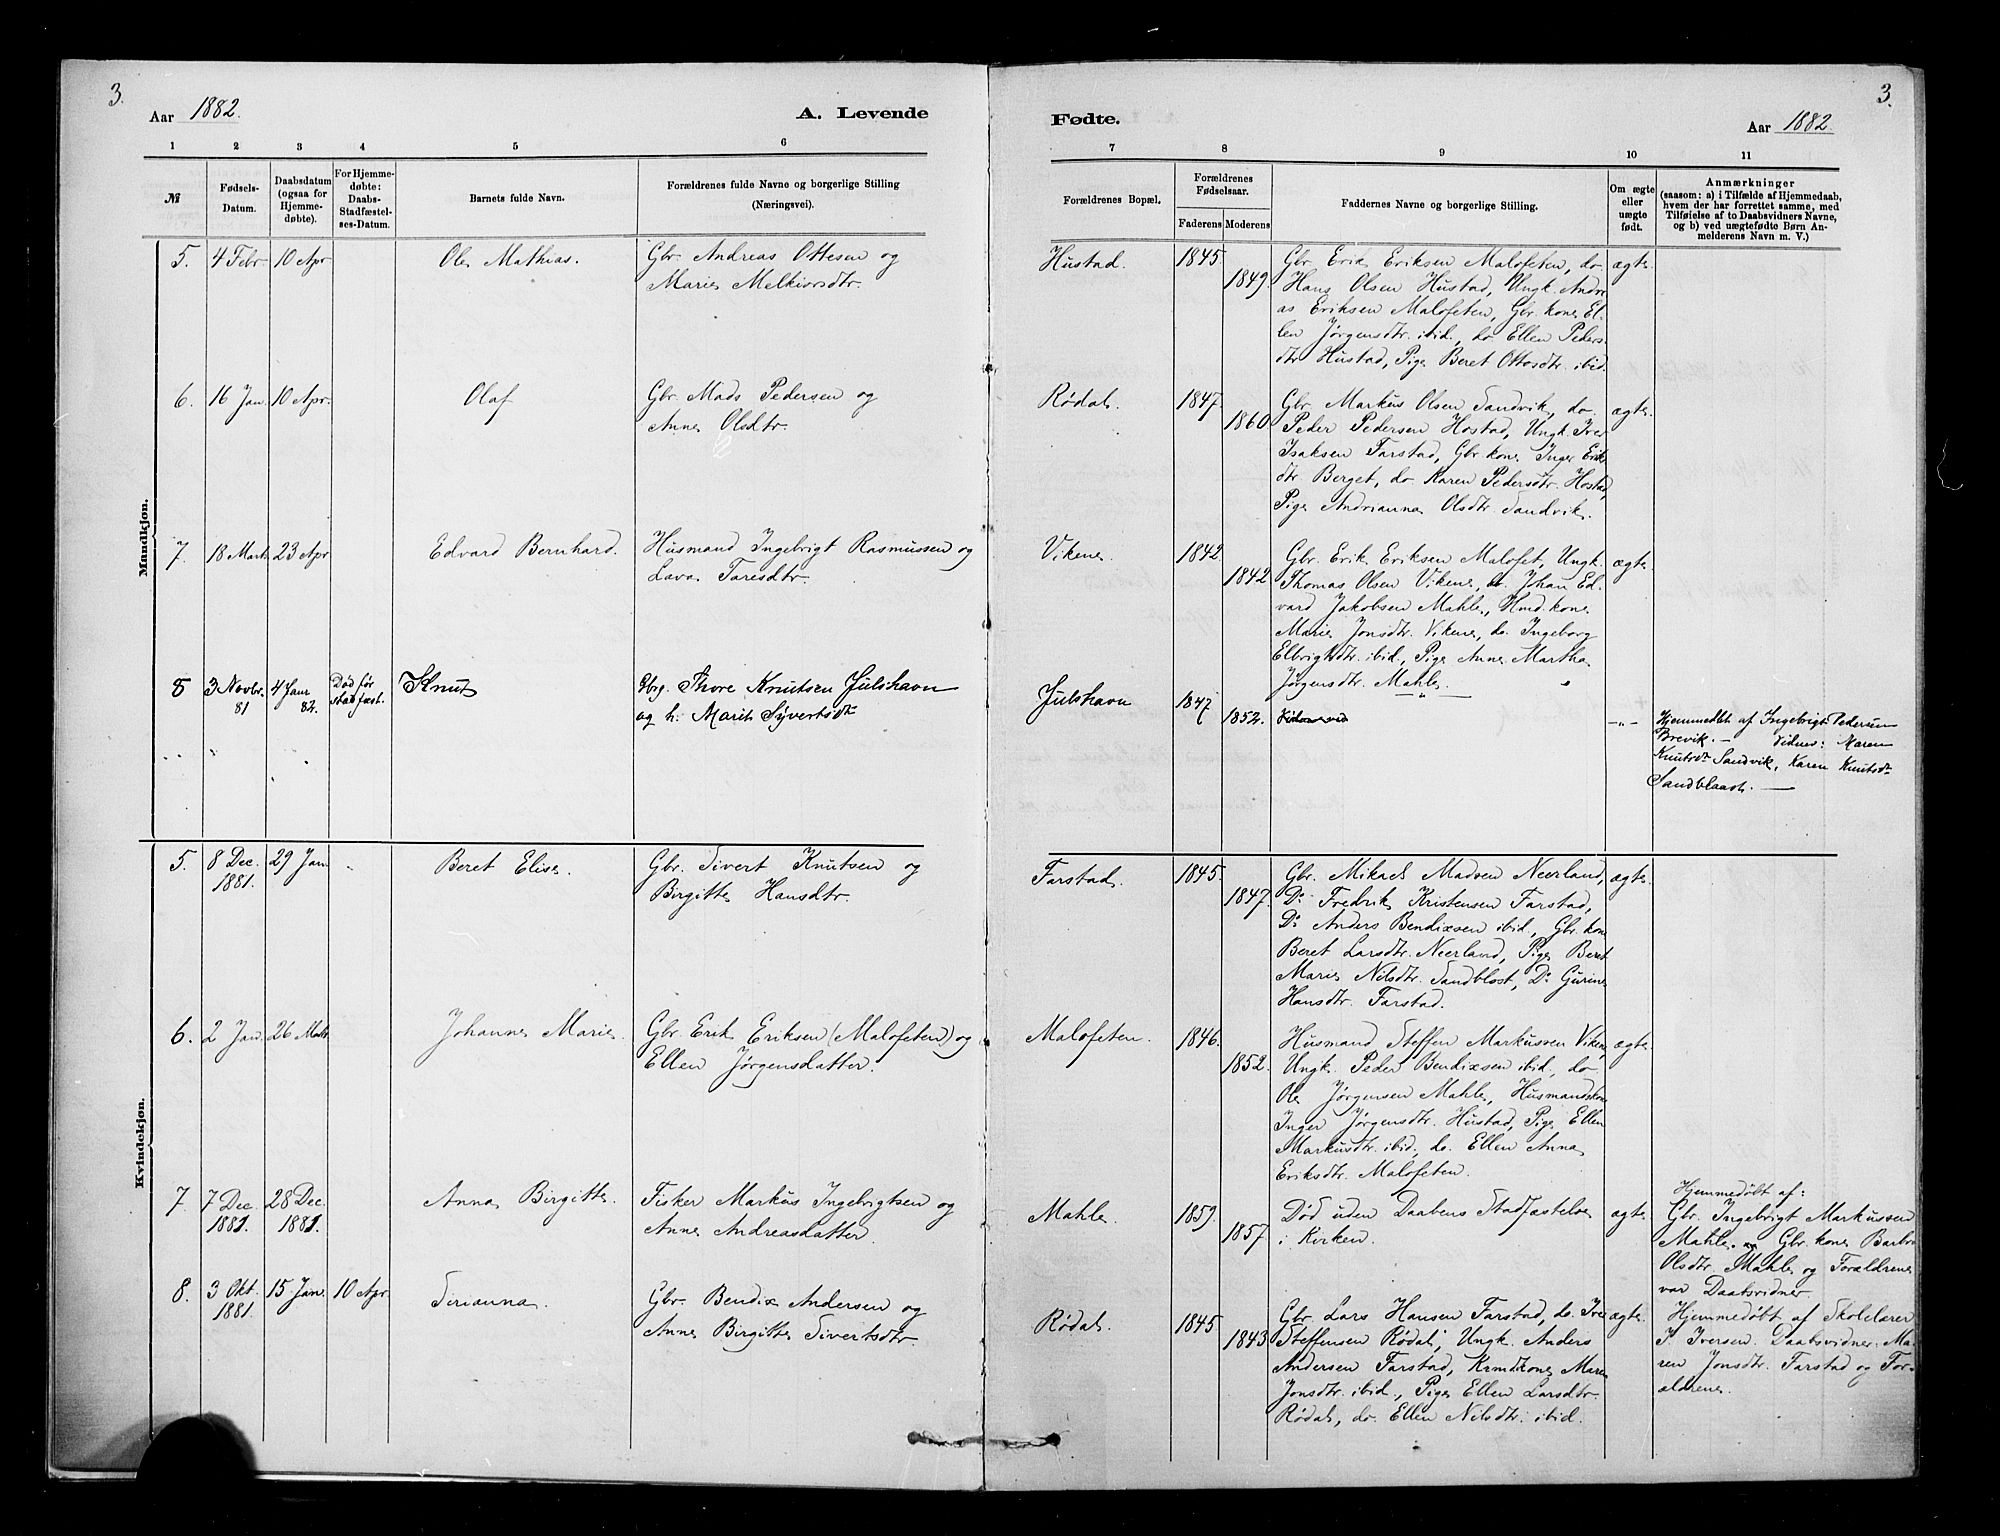 3.
Aar 1882.
A. Levende
1 2 3 4 5 6
№
Fødsels-Datum.
Daabsdatum (ogsaa for Hjemmedøbte).
For Hjemmedøbte: Daabs-Stadfæstelses-Datum.
Barnets fulde Navn.
Forældrenes fulde Navne og borgerlige Stilling (Næringsvei).
Mandkjøn.
5. 4 Febr. 10 Apr Ole Mathias. Gbr. Andreas Ottesen og
Marie Melkiorsdtr.
6. 16 Jan. 10 Apr. Olaf Gbr. Mads Pedersen og
Anne Olsdtr.
7. 18 Marts 23 Apr Edvard Bernhard. Husmand Ingebrigt Rasmussen og
Lava Taresdtr.
8 3 Novbr. 81 4 Janr 82. Død før Stadfæst. Knut Gbrg. Thore Knutsen Julshavn
og h. Marit Syvertsdtr
Kvindekjøn.
5. 8 Dec. 1881. 29 Jan. " Beret Elise. Gbr. Sivert Knutsen og
Birgitte Hansdtr.
6. 2 Jan. 26 Marts Johanne Marie. Gbr. Erik Eriksen (Malofeten) og
Ellen Jørgensdatter.
7. 7 Dec. 1881. 28 Dec. 1881. Anna Birgitte. Fisker Markus Ingebrigtsen og
Anne Andreasdatter.
8. 3 Okt. 1881. 15 Jan. 10 Apr. Sirianna. Gbr. Bendix Andersen og
Anne Birgitte Sivertsdtr
3.
Fødte.
Aar 1882.
7 8 9 10 11
Forældrenes Bopæl.
Forældrenes Fødselsaar.
Faderens Moderens
Faddernes Navne og borgerlige Stilling.
Om ægte eller uægte født.
Anmærkninger
(saasom: a) i Tilfælde af Hjemmedaab,
hvem der har forrettet samme, med
Tilføielse af to Daabsvidners Navne,
og b) ved uægtefødte Børn Anmelderens Navn m. V.)
Hustad. 1845. 1849. Gbr. Erik Eriksen Malofeten, do. ægte.
Hans Olsen Hustad, Ungk. Andre
as Eriksen Malofeten, Gbr. kone El
len Jørgensdtr. ibid., do Ellen Peders
dtr Hustad, Pige Beret Ottosdtr. ibid.
Rødal. 1847. 1860 Gbr. Markus Olsen Sandvik, do. ægte.
Peder Pedersen Hostad, Ungk. Iver
Isaksen Farstad, Gbr. kone Inger Eriks
dtr Berget, do Karen Pedersdtr. Hostad,
Pige Andrianna Olsdtr. Sandvik.
Vikene 1842. 1842 Gbr. Erik Eriksen Malofet, Ungk. ægte.
Thomas Olsen Vikene, do. Johan Ed
vard Jakobsen Mahle, Hmd. kone
Marie Jonsdtr. Vikene, do. Ingeborg
Elbrigtsdtr. ibid., Pige Anne Martha
Jørgensdtr. Mahle.
Julshavn 1847 1852. –"– Hjemmedbt af Ingebrigt Pedersen
Brevik. — Vidner: Maren
Knutsdtr Sandvik, Karen Knutsdtr
Sandblaast. —
Farstad. 1845. 1847. Gbr. Mikael Madsen Neerland, ægte.
Do Fredrik Kristensen Farstad,
Do Anders Bendixsen ibid., Gbr. kone
Beret Larsdtr. Neerland, Pige Beret
Marie Nilsdtr. Sandblost, Do Gurine
Hansdtr. Farstad.
Malofeten. 1846. 1852. Husmand Steffen Markussen Vikene, ægte.
Ungk. Peder Bendixsen ibid, do.
Ole Jørgensen Mahle, Husmandskone
Inger Jørgensdtr. Hustad, Pige Ellen
Markusdtr. ibid, do. Ellen Anna
Eriksdtr. Malofeten.
Mahle. 1859. 1857. Død uden Daabens Stadfæstelse ægte.
i Kirken.
Hjemmedøbt af:
Gbr. Ingebrigt Markussen
Mahle. Gbr. kone Barbro
Olsdtr. Mahle og Forældrene
var Daabsvidner.
Rødal. 1845. 1843 Gbr. Lars Hansen Farstad, do. Iver ægte.
Steffensen Rødal, Ungk. Anders
Andersen Farstad, Kone Maren
Jonsdtr. ibid., Pige Ellen Larsdtr.
Rødal, do. Ellen Nilsdtr. ibid.
Hjemmedøbt af Skolelærer
I. Iversen. Daabsvidner: Ma
ren Jonsdtr. Farstad og For-
ældrene.